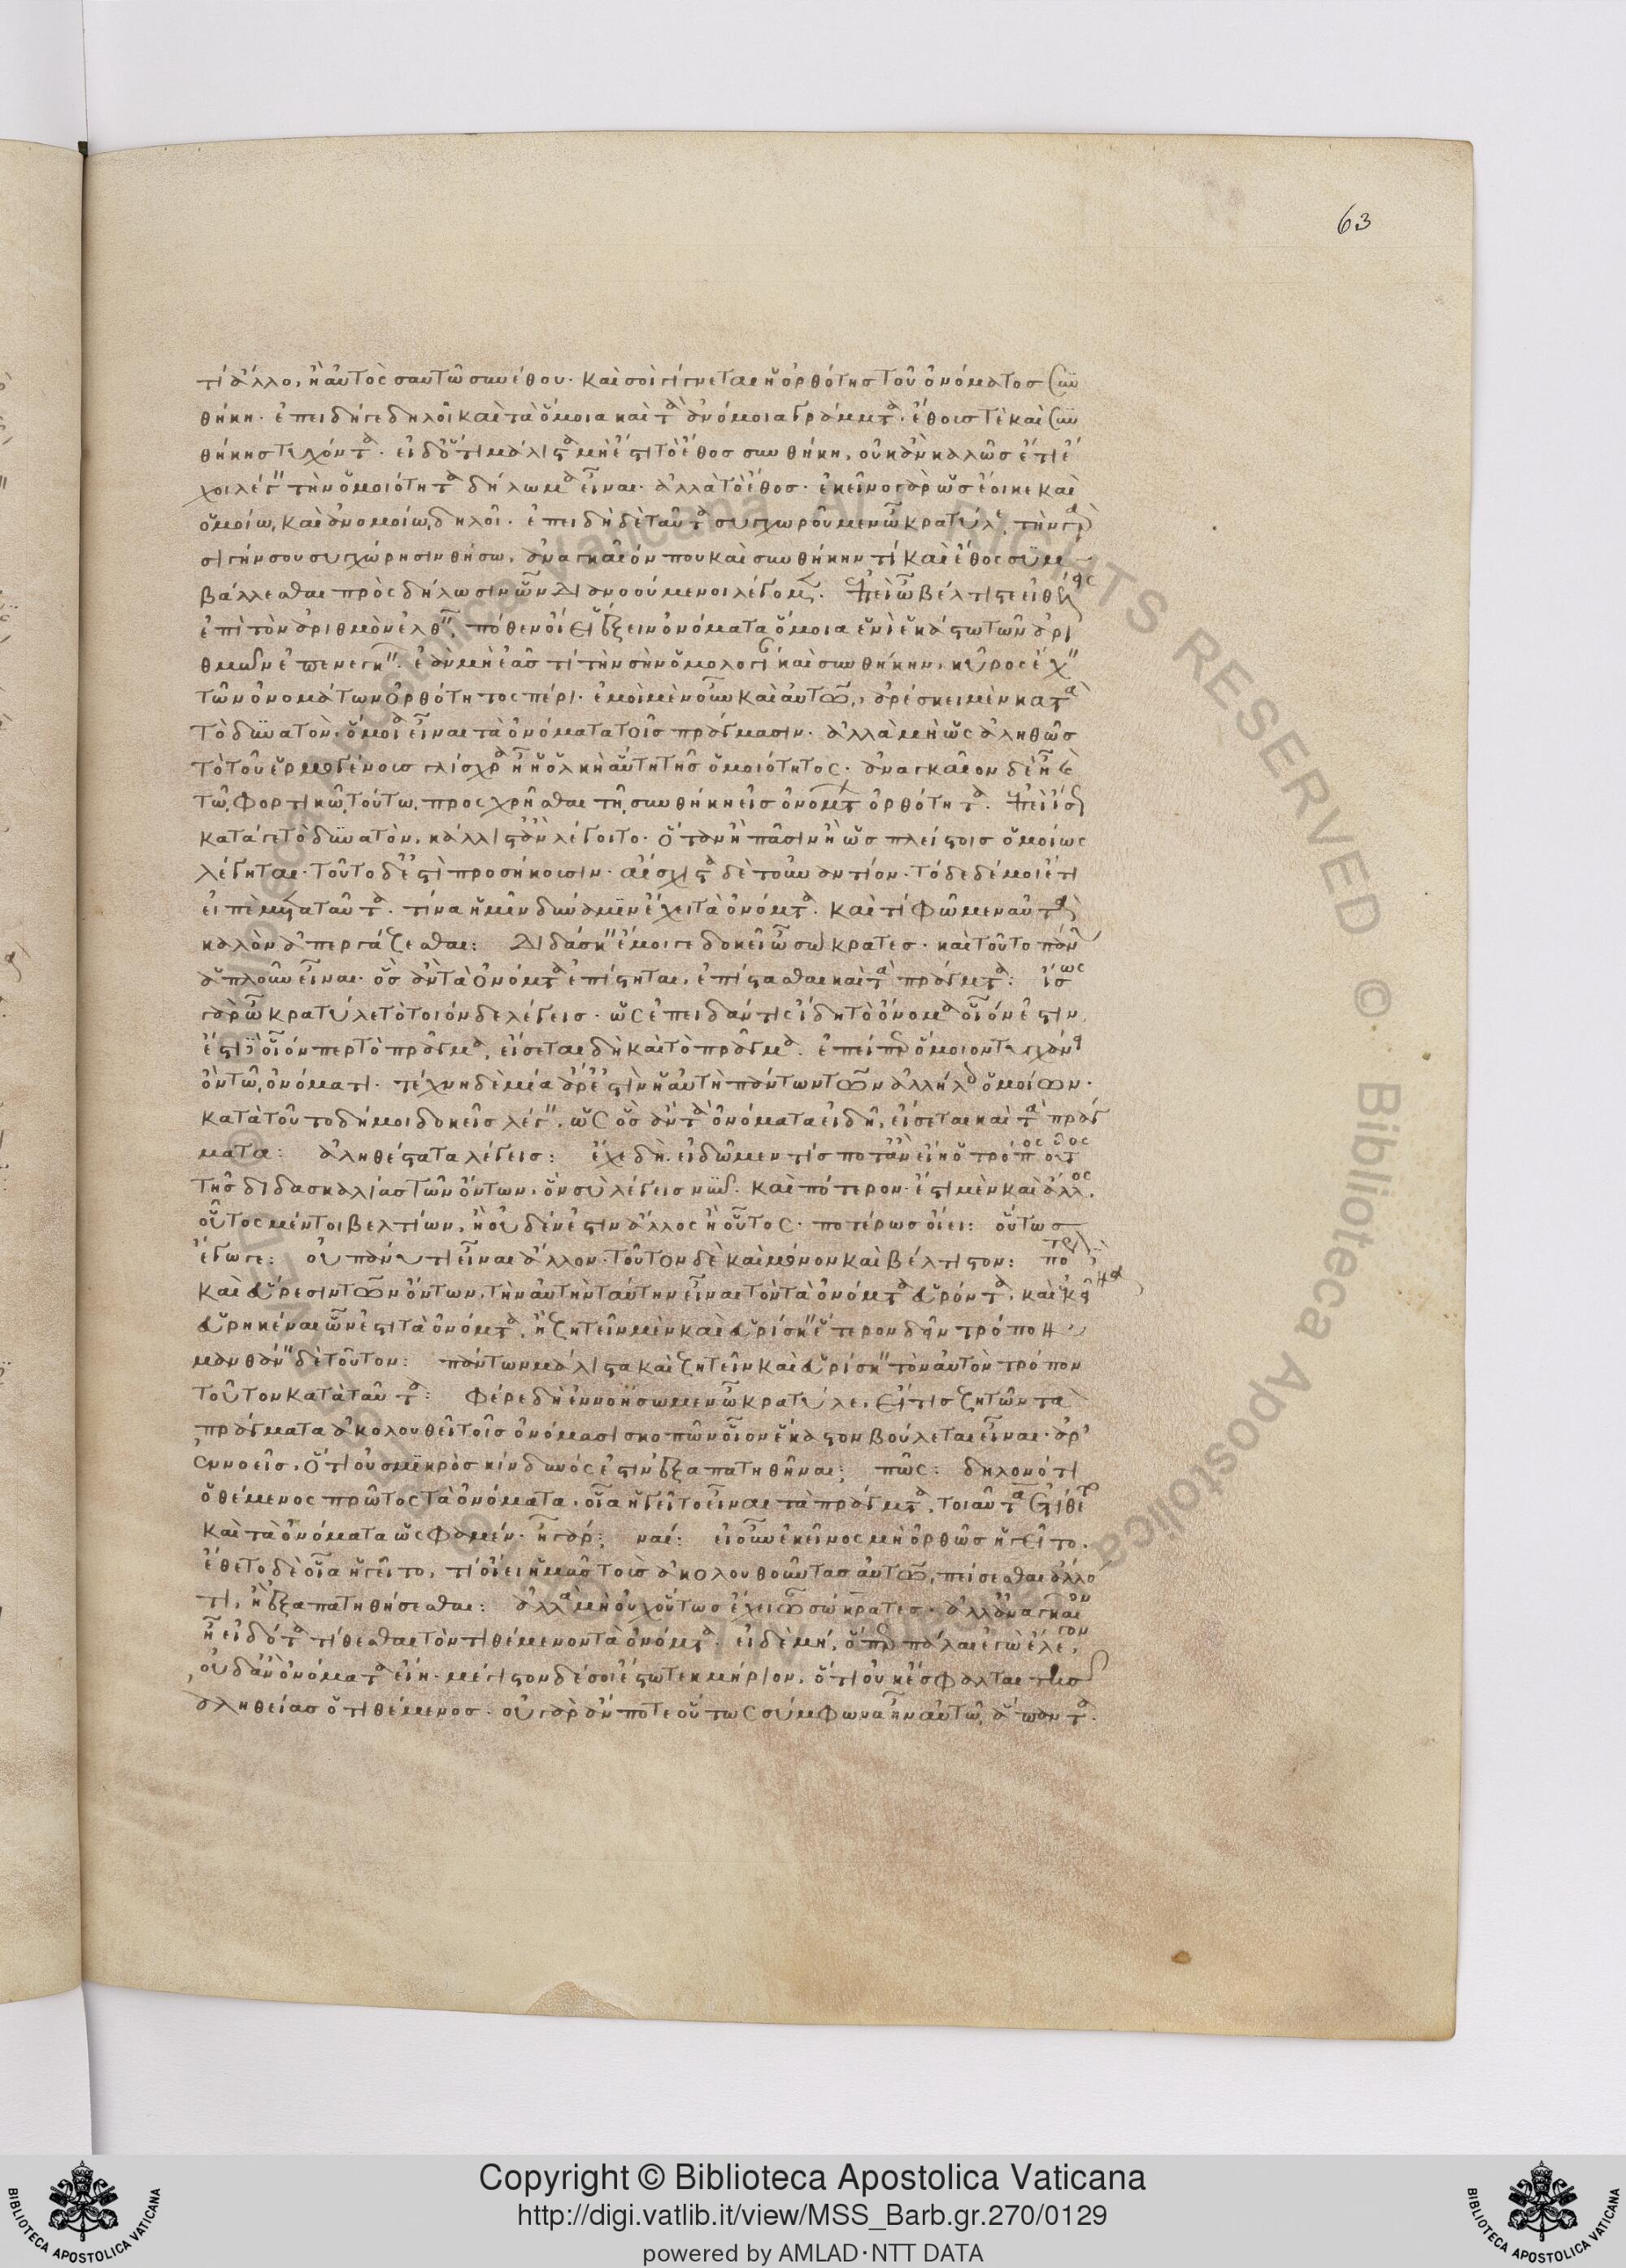 63
τί ἄλλο, ἢ αὐτὸς σαυτῷ συνέθου· καὶ σοὶ γίγνεται ἡ ὀρθότης τοῦ ὀνόματος συν
θήκη· ἐπειδή γε δηλοῖ καὶ τὰ ὅμοια καὶ τὰ ἀνόμοια γράμματα· ἔθους τὲ καὶ συν
θήκης τυχόντα· εἰ δ' ὅτι μάλιστα μή ἐστι τὸ ἔθος συνθήκη, οὐκ ἂν καλῶς ἔτι ἔ
χοι λέγειν τὴν ὁμοιότητα δήλωμα εἶναι· ἀλλὰ τὸ ἔθος· ἐκεῖνο γὰρ ὡς ἔοικε καὶ
ὁμοίῳ, καὶ ἀνομοίῳ, δηλοῖ· ἐπειδὴ δὲ ταῦτα συγχωροῦμεν ὦ κρατύλε, τὴν γὰρ
σιγήν σου συγχώρησιν θήσω, ἀναγκαῖόν που καὶ συνθήκην τί καὶ ἔθος συμ
βάλλεσθαι πρὸς δήλωσιν ὧν διανοούμενοι λέγομεν· ἐπεὶ ὦ βέλτιστε εἰ θέλεις
ἐπὶ τὸν ἀριθμὸν ἐλθεῖν, πόθεν οἴει ἕξειν ὀνόματα ὅμοια ἑνὶ ἑκάστῳ τῶν ἀρι
θμῶν ἐπενεγκεῖν· ἐὰν μὴ ἐᾷς τί τὴν σὴν ὁμολογίαν καὶ συνθήκην, κῦρος ἔχειν
τῶν ὀνομάτων ὀρθότητος πέρι· ἐμοὶ μὲν οὖν καὶ αὐτῷ, ἀρέσκει μὲν κατὰ
τὸ δυνατὸν, ὅμοια εἶναι τὰ ὀνόματα τοῖς πράγμασιν· ἀλλὰ μὴ ὡς ἀληθῶς
τὸ τοῦ ἑρμογένους γλίσχρα ἦ ἡ ὁλκὴ αὕτη τῆς ὁμοιότητος· ἀναγκαῖον δὲ ἦ καὶ
τῷ φορτικῷ τούτῳ, προσχρῆσθαι τῇ συνθήκῃ εἰς ὀνομάτων ὀρθότητα· ἐπεὶ ἴσως
κατά γε τὸ δυνατὸν, κάλλιστ' ἂν λέγοιτο· ὅταν ἢ πᾶσιν ἢ ὡς πλείστοις ὁμοίοις
λέγηται· τοῦτο δ' ἐστὶ προσήκουσιν· αἴσχιστα δὲ τοὐναντίον· τόδε δέ μοι ἔτι
εἰπὲ μετὰ ταῦτα· τίνα ἡμῖν δύναμιν ἔχει τὰ ὀνόματα· καὶ τί φῶμεν αὐτὰ
καλὸν ἀπεργάζεσθαι: διδάσκειν ἔμοιγε δοκεῖ ὦ σώκρατες· καὶ τοῦτο πάνυ
ἁπλοῦν εἶναι· ὃς ἂν τὰ ὀνόματα ἐπίστηται, ἐπίστασθαι καὶ τὰ πράγματα: ἴσως
γὰρ ὦ κρατύλε τὸ τοιόνδε λέγεις· ὡς ἐπειδάν τις εἰδῇ τὸ ὄνομα οἷόν ἐστιν,
ἔστι δ' οἷόν περ τὸ πρᾶγμα, εἴσεται δὴ καὶ τὸ πρᾶγμα· ἐπείπερ ὅμοιον τυγχάνει
ὂν τῷ ὀνόματι· τέχνη δὲ μία ἄρ' ἐστὶν ἡ αὐτὴ πάντων τῶν ἀλλήλοις ὁμοίων·
κατὰ τοῦτο δή μοι δοκεῖς λέγειν, ὡς ὃς ἂν τὰ ὀνόματα εἰδῇ, εἴσεται καὶ τὰ πράγ
ματα: ἀληθέστατα λέγεις: ἔχε δὴ· εἰδῶμεν τίς ποτ' ἂν εἴη ὁ τρόπος οὗτος
τῆς διδασκαλίας τῶν ὄντων, ὃν σὺ λέγεις νῦν· καὶ πότερον· ἔστι μὲν καὶ ἄλλος,
οὗτος μέντοι βελτίων, ἢ οὐδέν ἐστιν ἄλλος ἢ οὗτος· ποτέρως οἴει: οὕτως
ἔγωγε: οὐ πάνυ τι εἶναι ἄλλον· τοῦτον δὲ καὶ μόνον καὶ βέλτιστον: πότερον
καὶ εὕρεσιν τῶν ὄντων, τὴν αὐτὴν ταύτην εἶναι τὸν τὰ ὀνόματα εὑρόντα, καὶ ἐκεῖνα
εὑρηκέναι ὧν ἐστι τὰ ὀνόματα, ἢ ζητεῖν μὲν καὶ εὑρίσκειν ἕτερον δεῖν τρόπον
μανθάνειν δὲ τοῦτον: πάντων μάλιστα καὶ ζητεῖν καὶ εὑρίσκειν τὸν αὐτὸν τρόπον
τοῦτον κατὰ ταῦτα: φέρε δὴ ἐννοήσωμεν ὦ κρατύλε, εἴ τις ζητῶν τὰ
πράγματα ἀκολουθεῖ τοῖς ὀνόμασι σκοπῶν οἷον ἕκαστον βούλεται εἶναι· ἆρ'
ἐννοεῖς, ὅτι οὐ σμικρὸς κίνδυνός ἐστιν ἐξαπατηθῆναι; πῶς: δῆλον ὅτι
ὁ θέμενος πρῶτος τὰ ὀνόματα, οἷα ἡγεῖτο εἶναι τὰ πράγματα, τοιαῦτα ἐτίθετο
καὶ τὰ ὀνόματα ὥς φαμεν· ἦ γάρ; ναί: εἰ οὖν ἐκεῖνος μὴ ὀρθῶς ἡγεῖτο,
ἔθετο δὲ οἷα ἡγεῖτο, τί οἴει ἡμᾶς τοὺς ἀκολουθοῦντας αὐτῷ, πείσεσθαι ἄλλο
τι, ἢ ἐξαπατηθήσεσθαι: ἀλλὰ μὴ οὐχ οὕτως ἔχει ὦ σώκρατες· ἀλλ' ἀναγκαῖον
ἦ εἰδότα τίθεσθαι τὸν τιθέμενον τὰ ὀνόματα· εἰ δὲ μή, ὅπερ πάλαι ἐγὼ ἔλεγον,
οὐδ' ἂν ὀνόματα εἴη· μέγιστον δέ σοι ἔστω τεκμήριον, ὅτι οὐκ ἔσφαλται τῆς
ἀληθείας ὁ τιθέμενος· οὐ γὰρ ἄν ποτε οὕτως σύμφωνα ἦν αὐτῷ ἅπαντα·
Copyright © Biblioteca Apostolica Vaticana
http://digi.vatlib.it/view/MSS_Barb.gr.270/0129
powered by AMLAD·NTT DATA